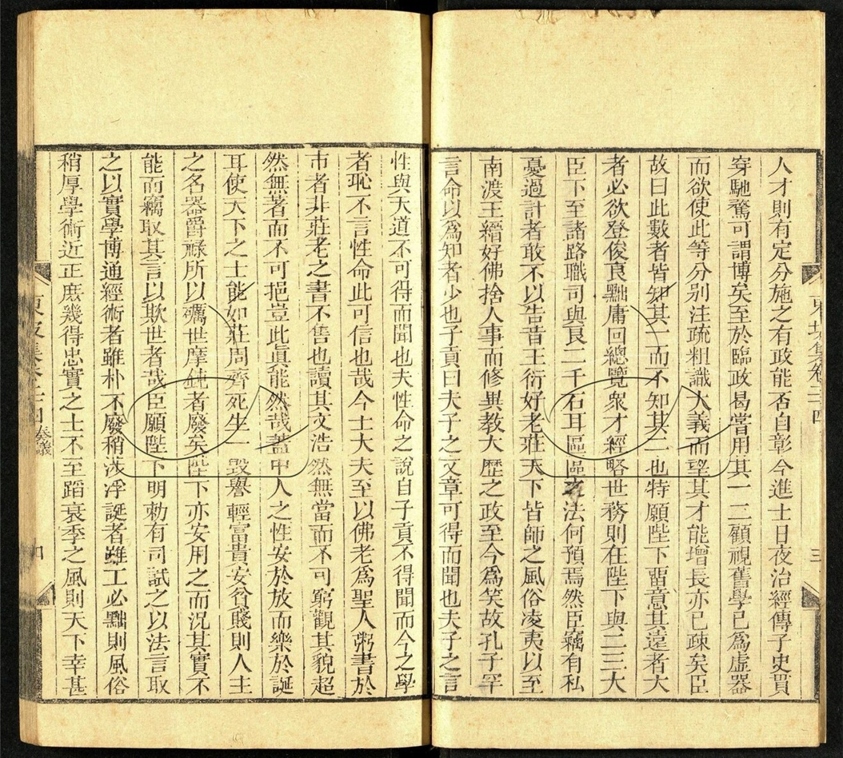 東坡集卷二十四
三
人才則有定分施之有政能否自彰今進士日夜治經傳子史貫
穿馳騖可謂博矣至於臨政曷嘗用其一二顧視舊學已爲虛器
而欲使此等分別注疏粗識大義而望其才能增長亦已疎矣臣
故曰此數者皆知其一而不知其二也特願陛下畱意其遠者大
者必欲登俊良黜庸回總覽衆才經畧世務則在陛下與二三大
臣下至諸路職司與良二千石耳區區之法何預焉然臣竊有私
憂過計者敢不以告昔王衍好老莊天下皆師之風俗淩夷以至
南渡王縉好佛捨人事而修異教大歷之政至今爲笑故孔子罕
言命以爲知者少也子貢曰夫子之文章可得而聞也夫子之言
性與天道不可得而聞也夫性命之說自子貢不得聞而今之學
者恥不言性命此可信也哉今士大夫至以佛老爲聖人粥書於
市者非莊老之書不售也讀其文浩然無當而不可窮觀其貌超
然無著而不可挹豈此眞能然哉葢中人之性安於放而樂於誕
耳使天下之士能如莊周齊死生一毀譽輕富貴安貧賤則人主
之名器爵祿所以礪世摩鈍者廢矣陛下亦安用之而況其實不
能而竊取其言以欺世者哉臣願陛下明勅有司試之以法言取
之以實學博通經術者雖朴不廢稍涉浮誕者雖工必黜則風俗
稍厚學術近正庶幾得忠實之士不至蹈衰季之風則天下幸甚
東坡集卷二十四 奏議
四